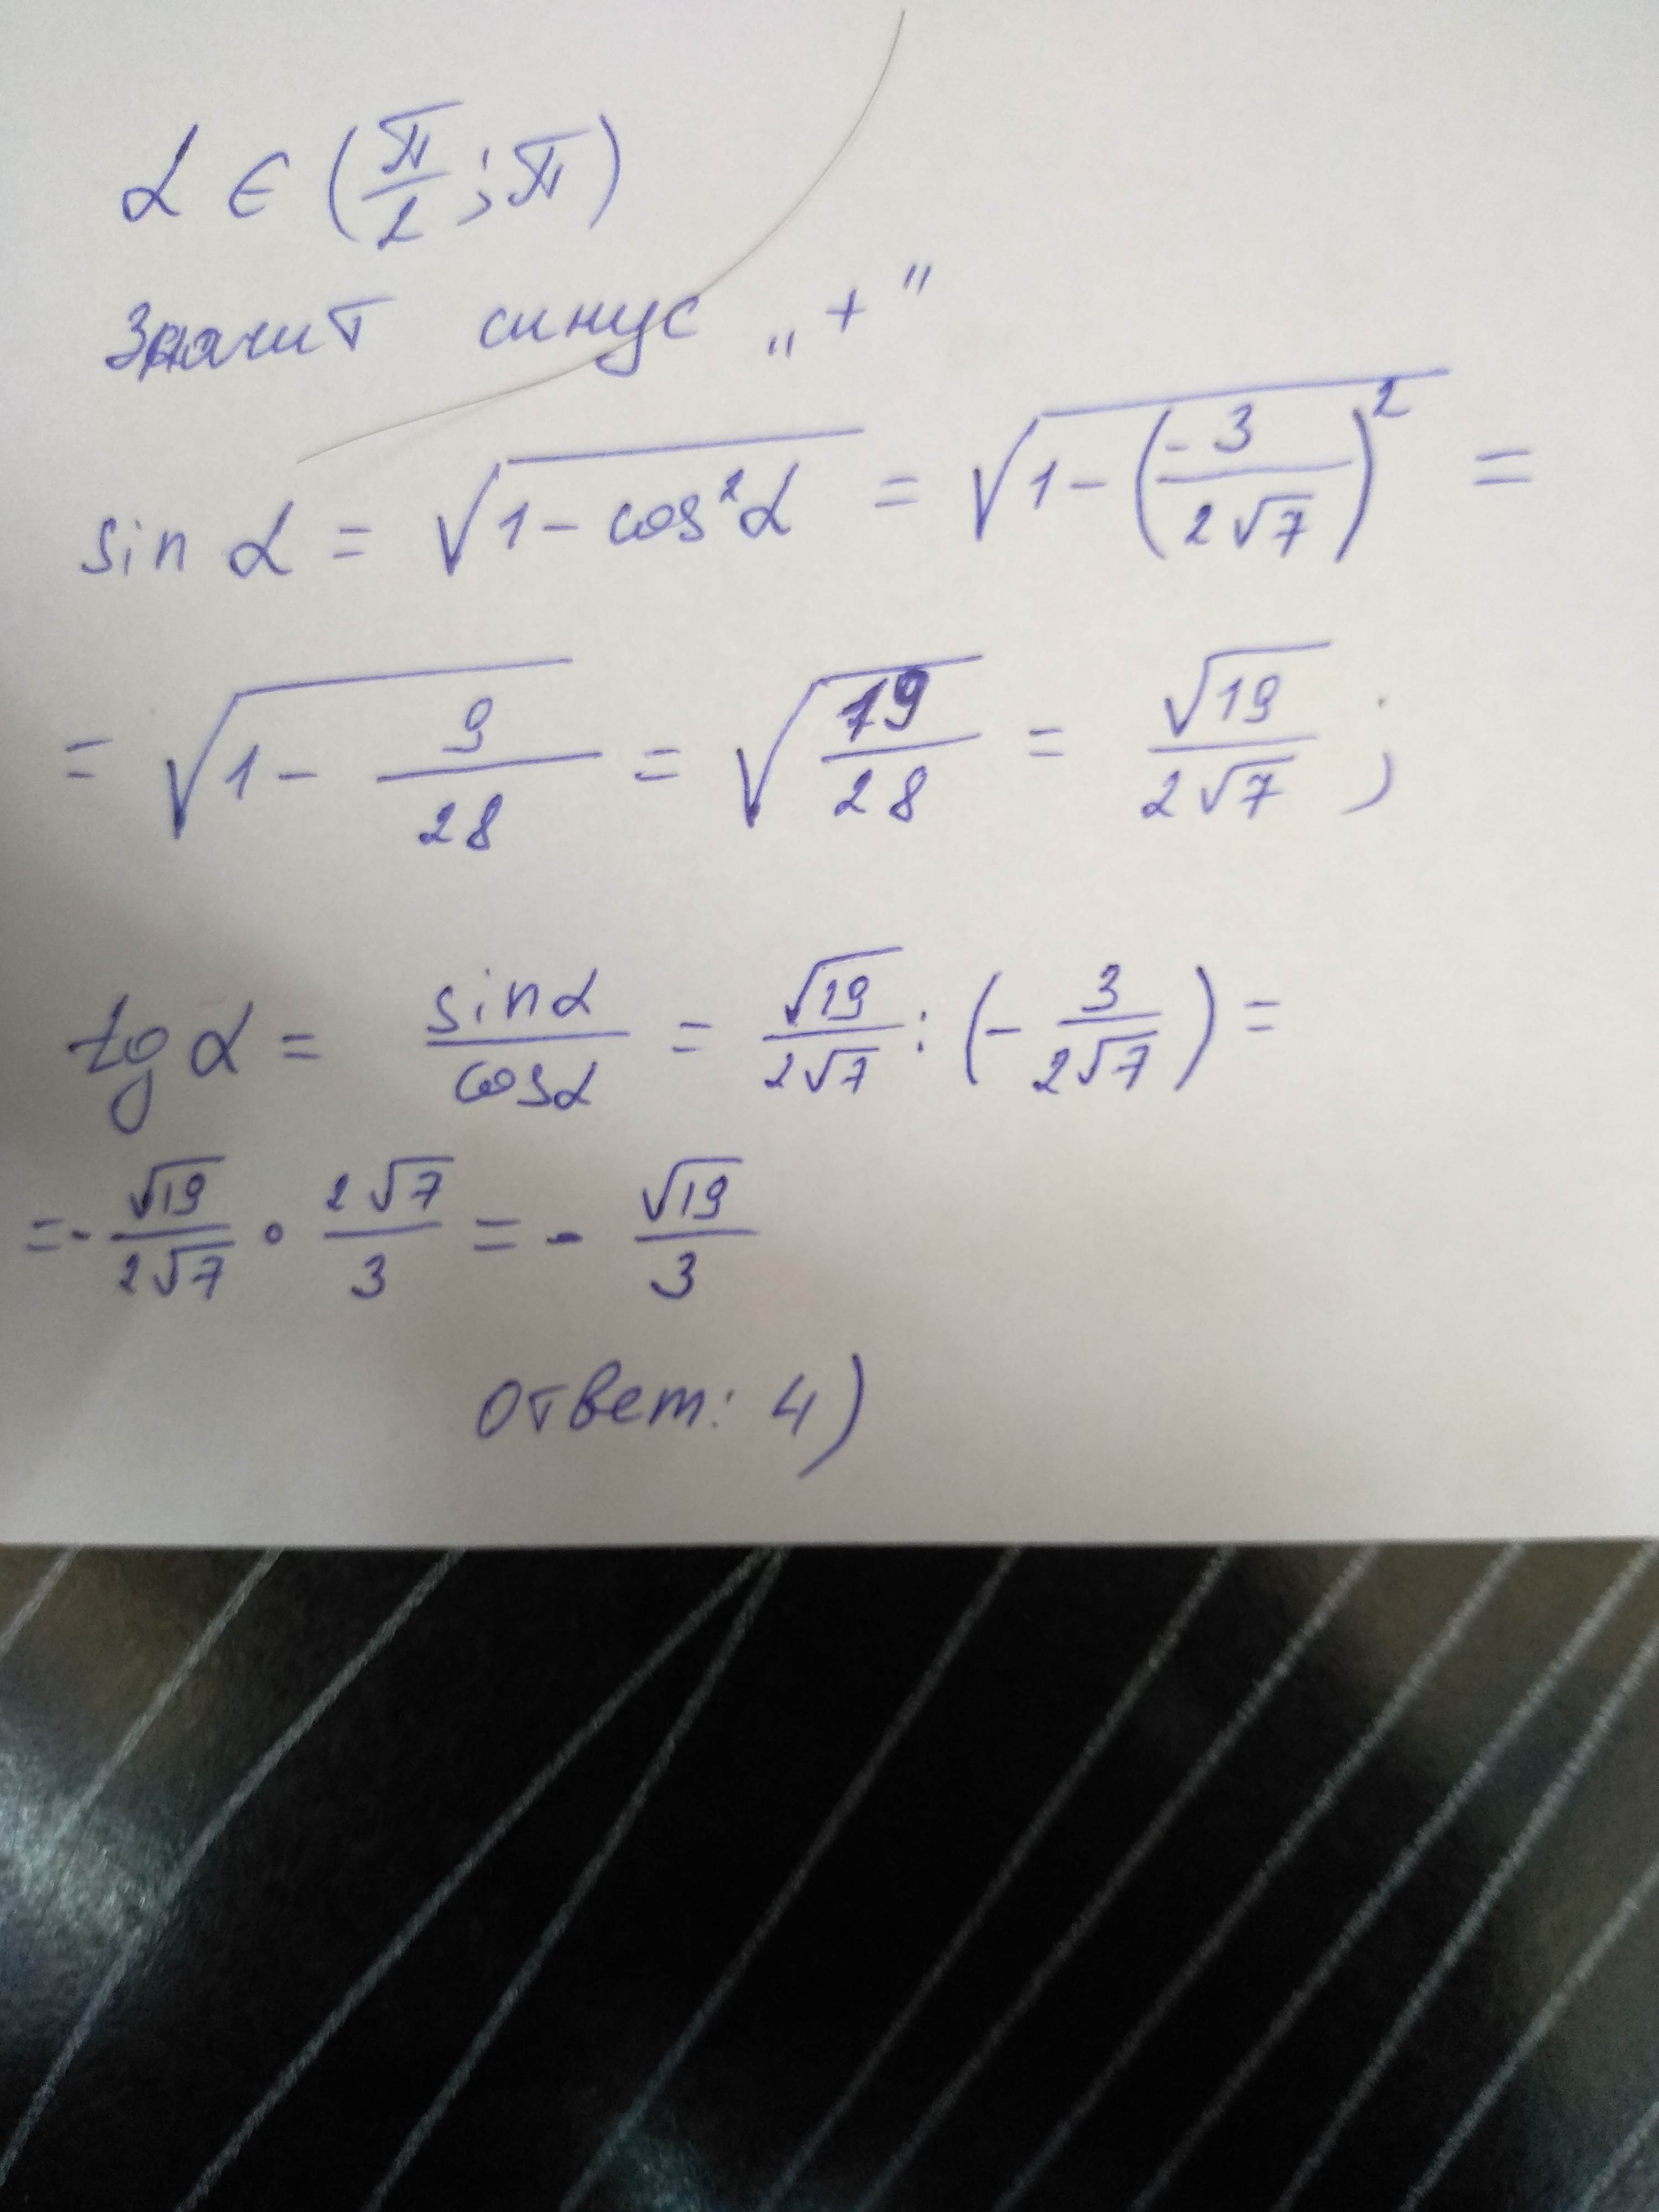 α ∈ (π/2; π)
Значит синус „+"
sin α = √(1 - cos²α) = √(1 - (-3/(2√7))²) =
= √(1 - 9/28) = √(19/28) = √19/(2√7);
tg α = sinα/cosα = √19/(2√7) : (- 3/(2√7)) =
= - √19/(2√7) · 2√7/3 = - √19/3
Ответ: 4)